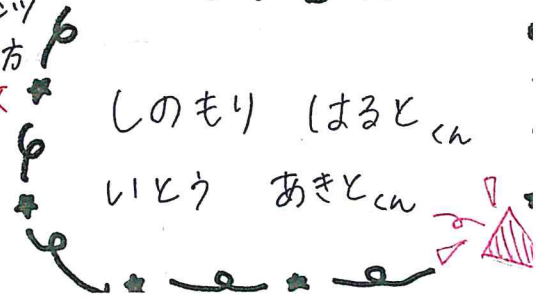 方
しのもり はるとくん
いとう あきとくん